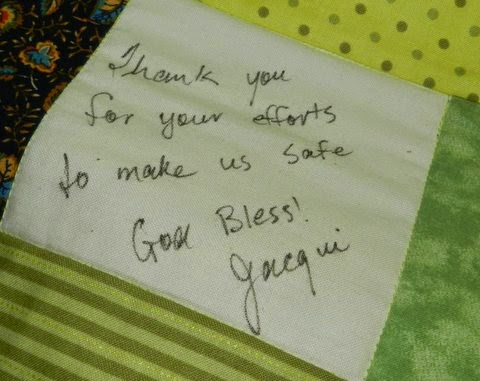 Thank you
for your efforts
to make us safe
God Bless!
Jacqui